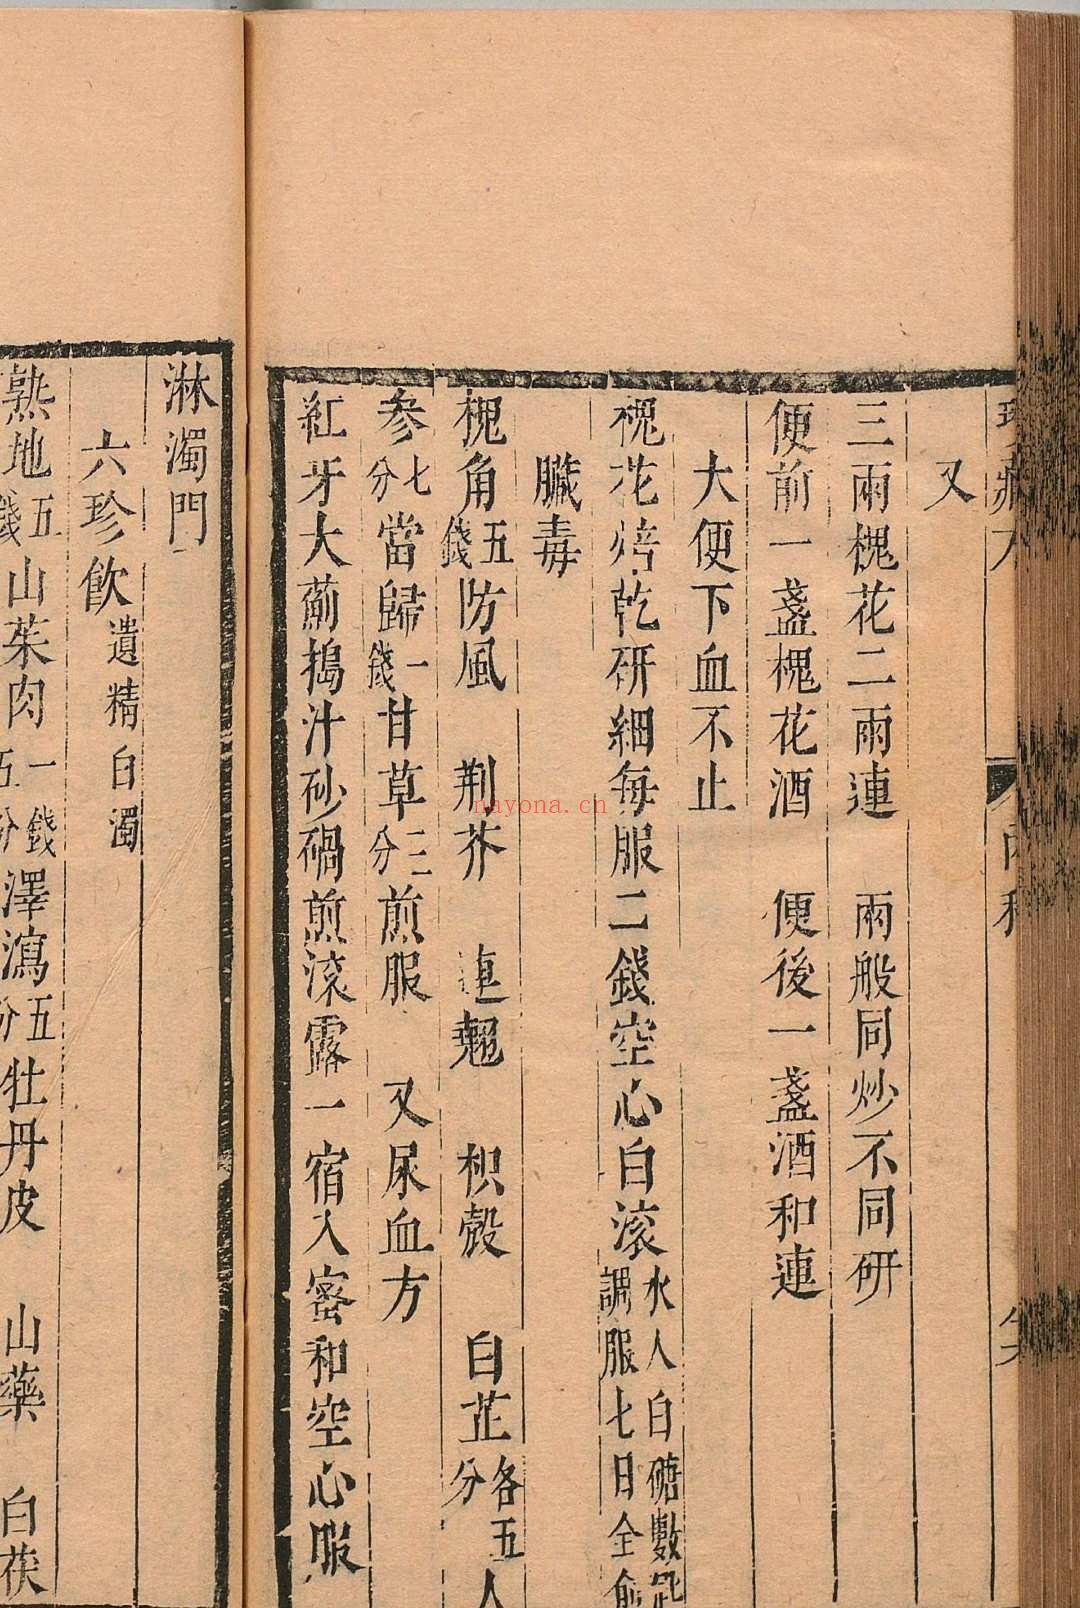 又
三兩槐花二兩連　兩般同炒不同研
便前一盞槐花酒　便後一盞酒和連
大便下血不止
槐花焙乾研細每服二錢空心白滚水人白磄數匙調服七日全愈
臟毒
槐角五錢防風　荆芥　連翹　枳殼　白芷各五分人
參七分當歸一錢甘草三分煎服　又尿血方
紅牙大薊搗汁砂磆煎滚露一宿入蜜和空心服
淋濁門
六珍飲遺精白濁
熟地五錢山茱肉一錢五分澤瀉五分牡丹皮　山藥　白茯
nayona.cn